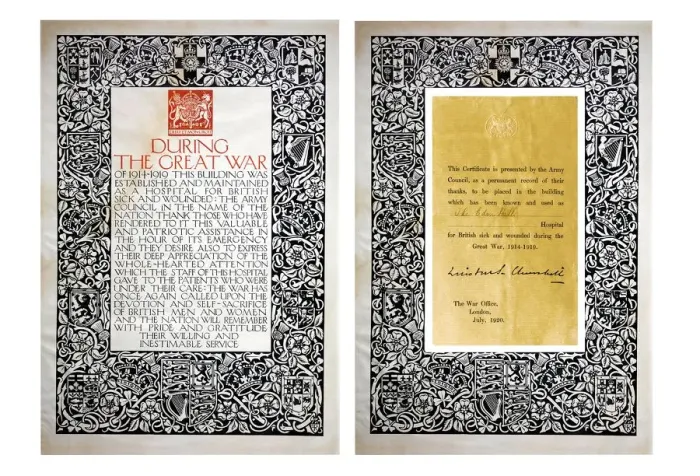 DURING
THE GREAT WAR
OF 1914-1919 THIS BUILDING WAS
ESTABLISHED AND MAINTAINED
AS A HOSPITAL FOR BRITISH
SICK AND WOUNDED: THE ARMY
COUNCIL IN THE NAME OF THE
NATION THANK THOSE WHO HAVE
RENDERED TO IT THIS VALUABLE
AND PATRIOTIC ASSISTANCE IN
THE HOUR OF ITS EMERGENCY
AND THEY DESIRE ALSO TO EXPRESS
THEIR DEEP APPRECIATION OF THE
WHOLE-HEARTED ATTENTION
WHICH THE STAFF OF THIS HOSPITAL
GAVE TO THE PATIENTS WHO WERE
UNDER THEIR CARE: THE WAR HAS
ONCE AGAIN CALLED UPON THE
DEVOTION AND SELF-SACRIFICE
OF BRITISH MEN AND WOMEN
AND THE NATION WILL REMEMBER
WITH PRIDE AND GRATITUDE
THEIR WILLING AND
INESTIMABLE SERVICE
This Certificate is presented by the Army
Council, as a permanent record of their
thanks, to be placed in the building
which has been known and used as
Hospital
for British sick and wounded during the
Great War, 1914-1919.
Winston S. Churchill
The War Office,
London,
July, 1920.